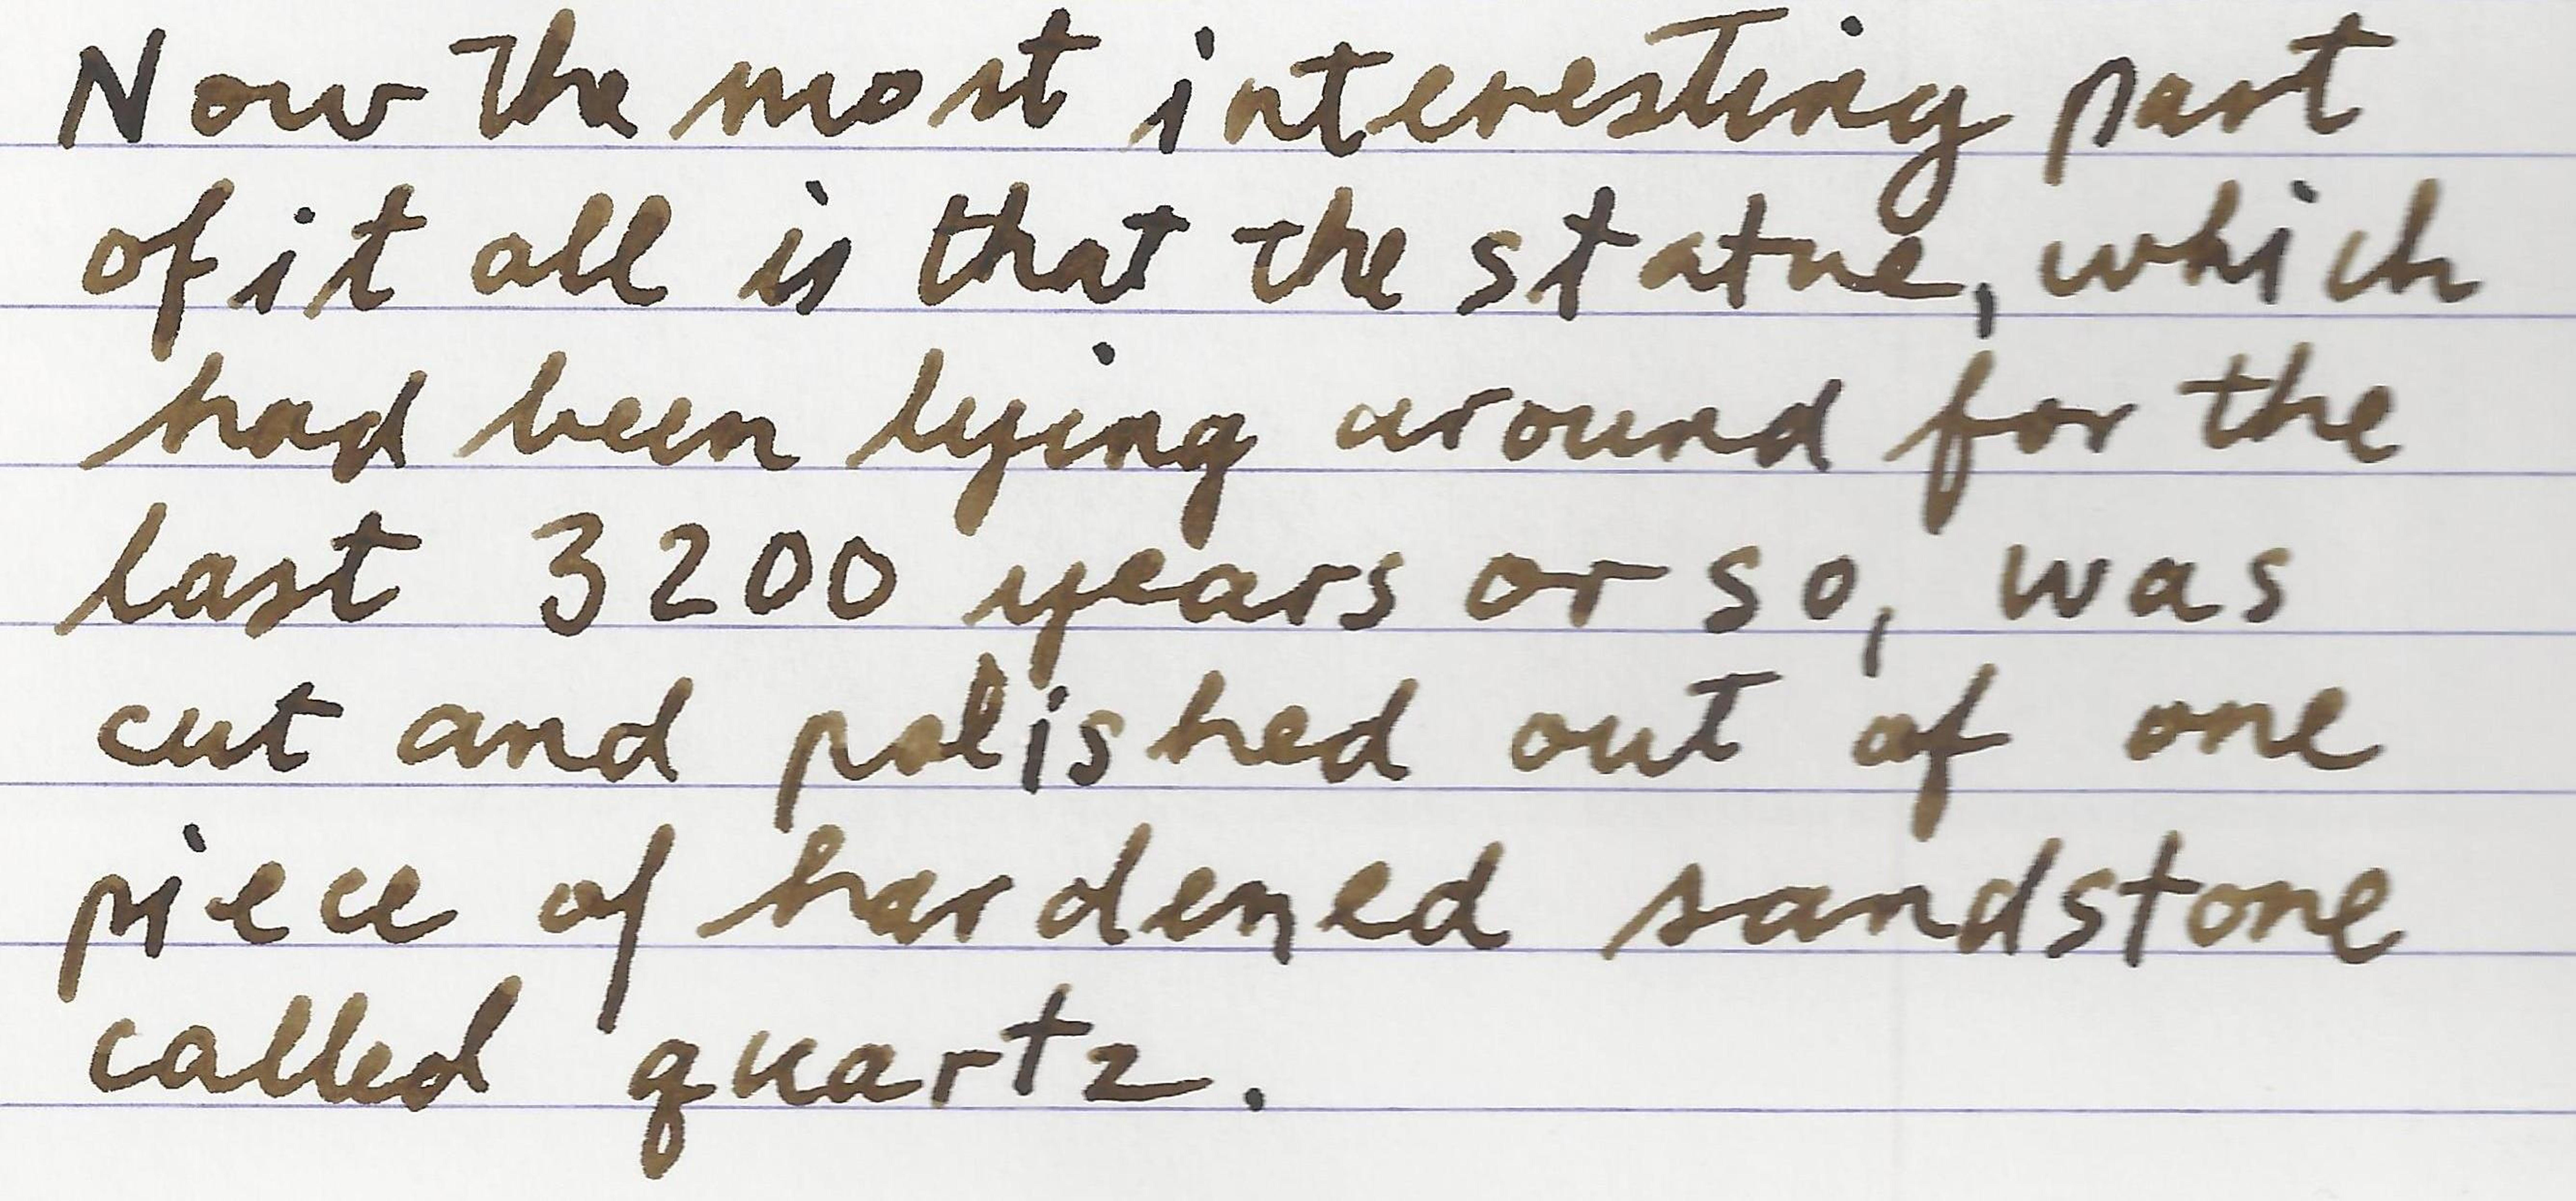 Now the most interesting part
of it all is that the statue, which
had been lying around for the
last 3200 years or so, was
cut and polished out of one
piece of hardened sandstone
called quartz.